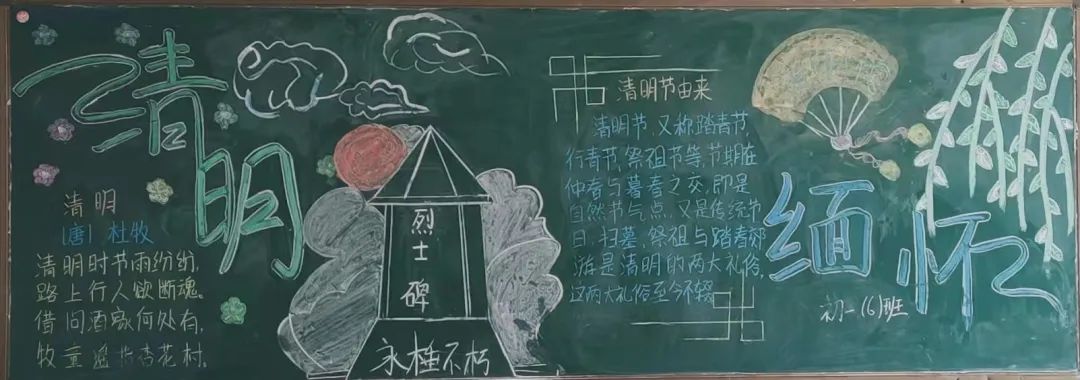 清明
清明
[唐] 杜牧
清明时节雨纷纷,
路上行人欲断魂。
借问酒家何处有,
牧童遥指杏花村.
烈士碑
永垂不朽
清明节由来
清明节,又称踏青节,
行青节,祭祖节等,节期在
仲春与暮春之交,即是
自然节气点,又是传统节
日,扫墓,祭祖与踏青郊
游是清明的两大礼俗,
这两大礼俗至今不辍.
缅怀
初一(6)班